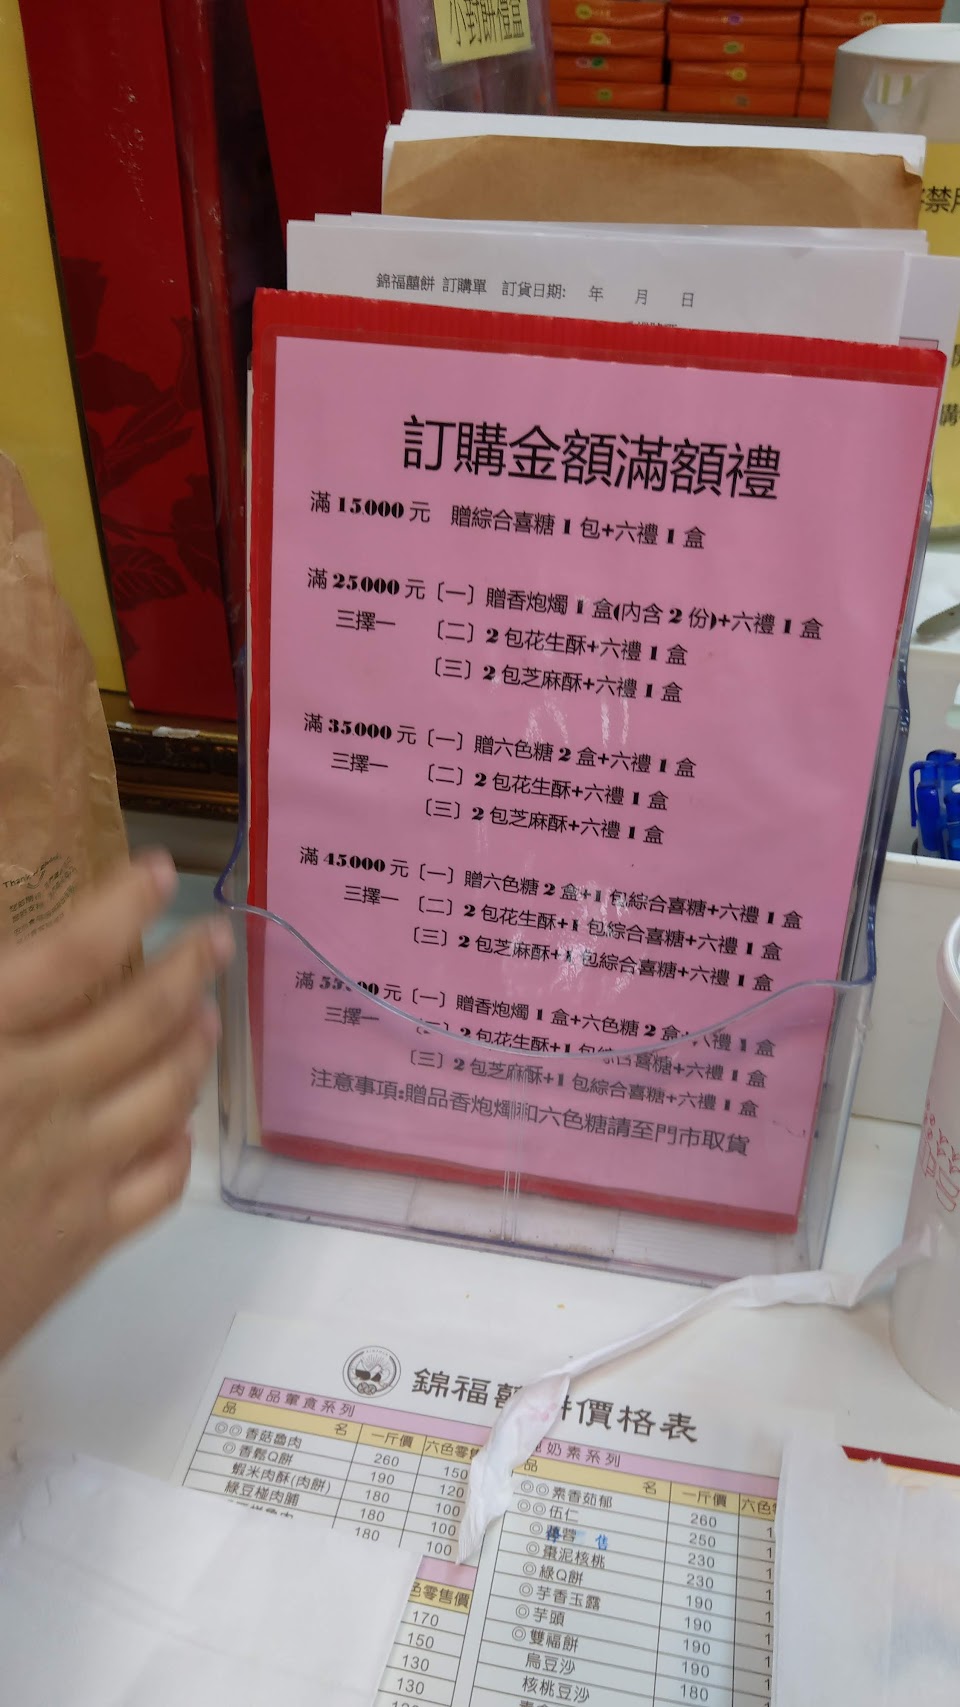 小對餅禮盒
錦福囍餅 訂購單 訂貨日期: 年 月 日
訂購金額滿額禮
滿 15000 元 贈綜合喜糖 1 包+六禮 1 盒
滿 25000 元〔一〕贈香炮燭 1 盒(內含 2 份)+六禮 1 盒
三擇一 〔二〕2 包花生酥+六禮 1 盒
〔三〕2 包芝麻酥+六禮 1 盒
滿 35000 元〔一〕贈六色糖 2 盒+六禮 1 盒
三擇一 〔二〕2 包花生酥+六禮 1 盒
〔三〕2 包芝麻酥+六禮 1 盒
滿 45000 元〔一〕贈六色糖 2 盒+1 包綜合喜糖+六禮 1 盒
三擇一 〔二〕2 包花生酥+1 包綜合喜糖+六禮 1 盒
〔三〕2 包芝麻酥+1 包綜合喜糖+六禮 1 盒
滿 55000 元〔一〕贈香炮燭 1 盒+六色糖 2 盒+六禮 1 盒
三擇一 〔二〕2 包花生酥+1 包綜合喜糖+六禮 1 盒
〔三〕2 包芝麻酥+1 包綜合喜糖+六禮 1 盒
注意事項:贈品香炮燭和六色糖請至門市取貨
錦福囍餅價格表
肉製品葷食系列
品 名 一斤價 六色零售
◎◎香菇魯肉 260 150
◎香鬆Q餅 190 120
蝦米肉酥(肉餅) 180 100
綠豆椪肉脯 180 100
180 100
色零售價
170
150
130
130
奶素系列
品 名 一斤價 六色
◎◎素香茹郁 260
◎◎伍仁 250
230
◎棗泥核桃 230
◎綠Q餅 190
◎芋香玉露 190
◎芋頭 190
◎雙福餅 190
烏豆沙 180
核桃豆沙